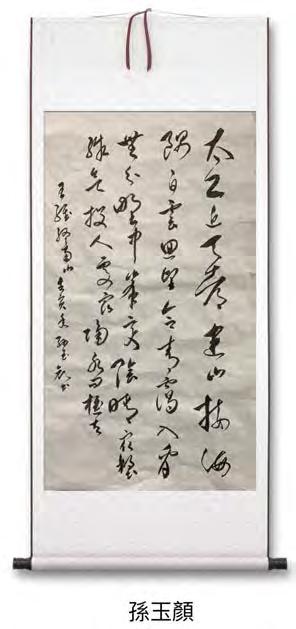 太乙近天都連山接海
隅白雲迴望合青靄入看
無分野中峯變陰晴眾壑
殊欲投人處宿隔水問樵夫
王維終南山 孫玉顏書
孫玉顏